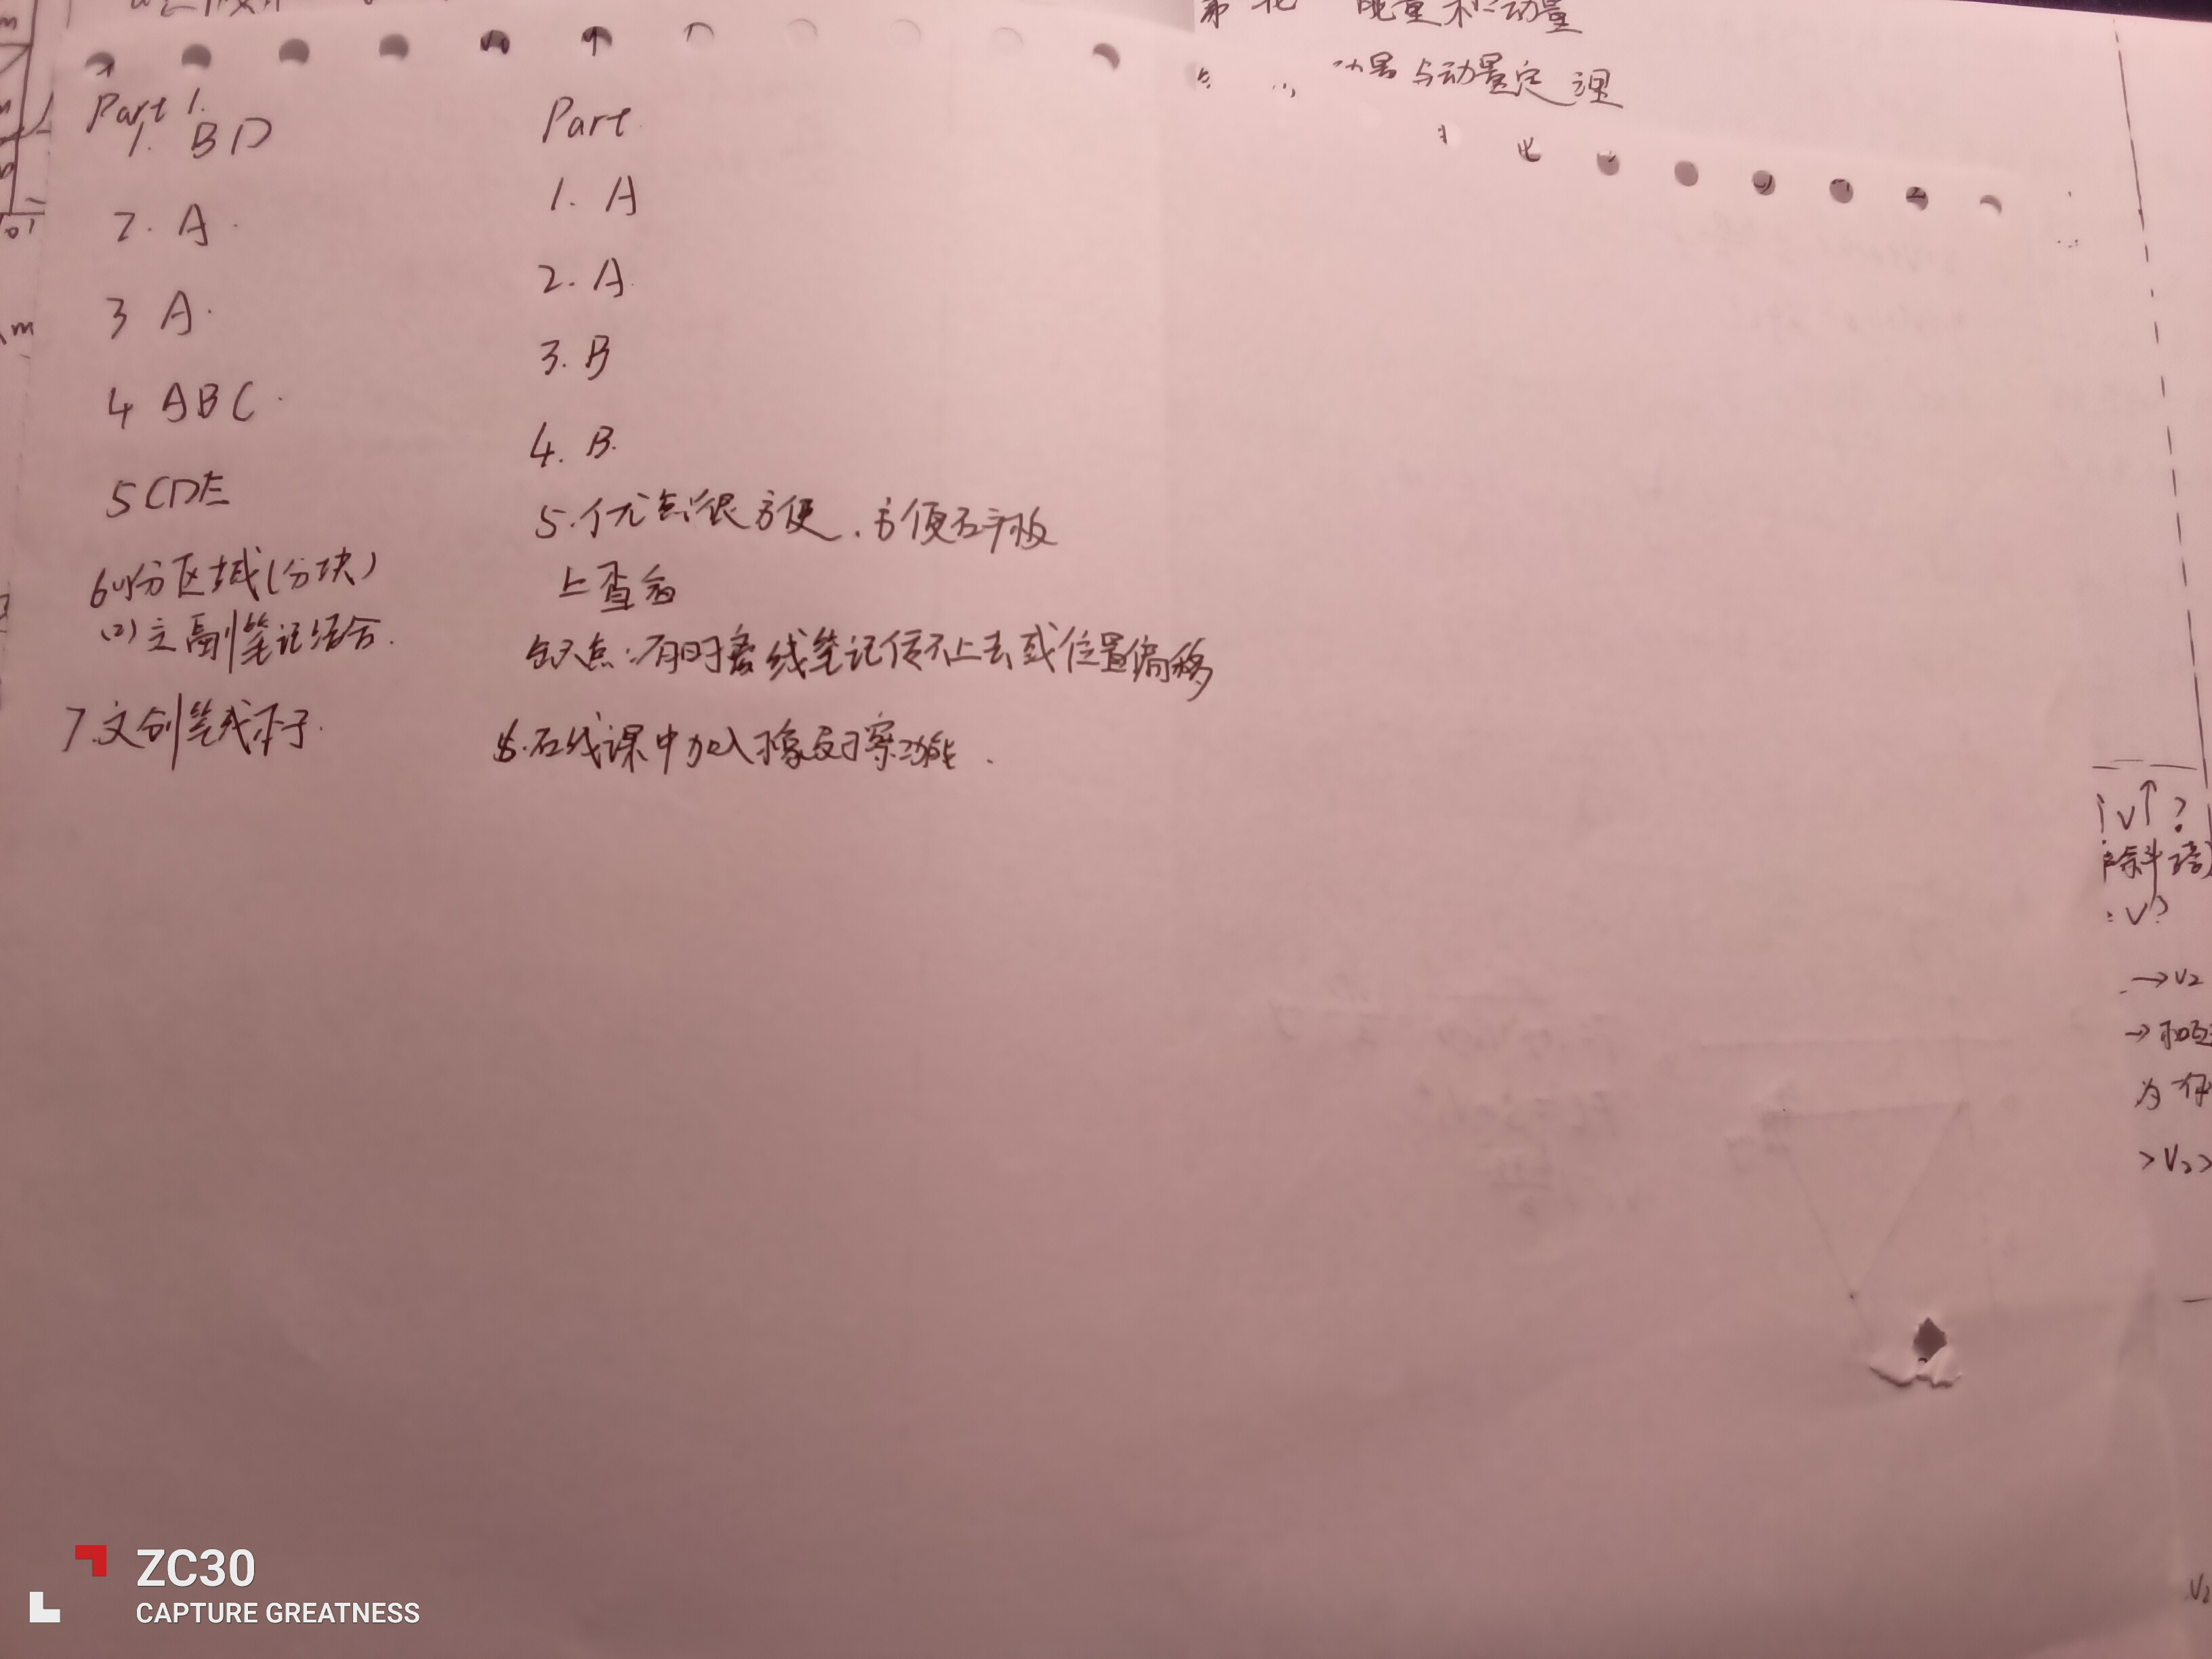 Part 1.
1. BD
2. A.
3 A.
4 ABC.
5 CDE
6(1)分区域(分块)
(2)主副笔记结合.
7.文创笔或本子.
Part
1. A
2. A.
3. B
4. B.
5.优点:很方便,方便在平板
上查看
缺点:有时离线笔记传不上去或位置偏移
6.在线课中加入橡皮擦功能.
能量和动量
与动量定理
v↑?
除斜
v?
→v₂
→
为
>v₂>
v₂
ZC30
CAPTURE GREATNESS